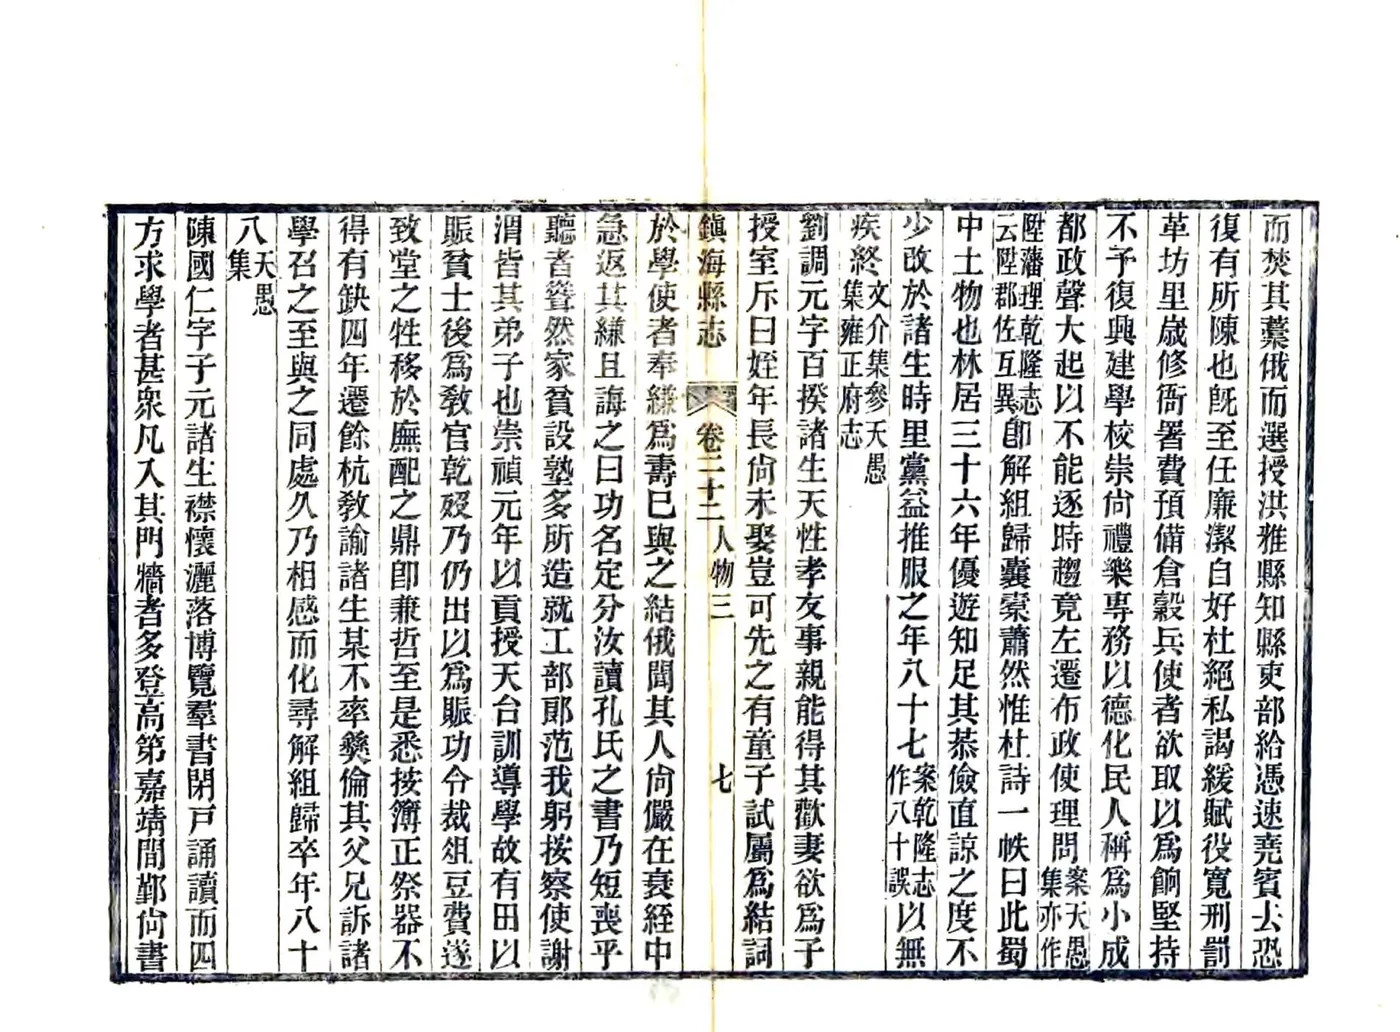 而焚其藁俄而選授洪雅縣知縣吏部給憑速堯賓去恐
復有所陳也旣至任廉潔自好杜絕私謁緩賦役寬刑罰
革坊里歲修衙署費預備倉穀兵使者欲取以爲餉堅持
不予復興建學校崇尙禮樂專務以德化民人稱爲小成
都政聲大起以不能逐時趨竟左遷布政使理問案天愚集亦作
陞藩理乾隆志云陞郡佐互異卽解組歸囊橐蕭然惟杜詩一帙曰此蜀
中土物也林居三十六年優遊知足其恭儉直諒之度不
少改於諸生時里黨益推服之年八十七案乾隆志作八十誤以無
疾終文介集參天愚集雍正府志
劉調元字百揆諸生天性孝友事親能得其歡妻欲爲子
授室斥曰姪年長尙未娶豈可先之有童子試屬爲結詞
鎭海縣志 卷二十二 人物三 七
於學使者奉縑爲壽巳與之結俄聞其人尙儼在衰絰中
急返其縑且誨之曰功名定分汝讀孔氏之書乃短喪乎
聽者聳然家貧設塾多所造就工部郞范我躬按察使謝
渭皆其弟子也崇禎元年以貢授天台訓導學故有田以
賑貧士後爲敎官乾沒乃仍出以爲賑功令裁俎豆費遂
致堂之牲移於廡配之鼎卽兼哲至是悉按簿正祭器不
得有缺四年遷餘杭敎諭諸生某不率彝倫其父兄訴諸
學召之至與之同處久乃相感而化尋解組歸卒年八十
八天愚集
陳國仁字子元諸生襟懷灑落博覽羣書閉戸誦讀而四
方求學者甚衆凡入其門牆者多登高第嘉靖間鄞尙書